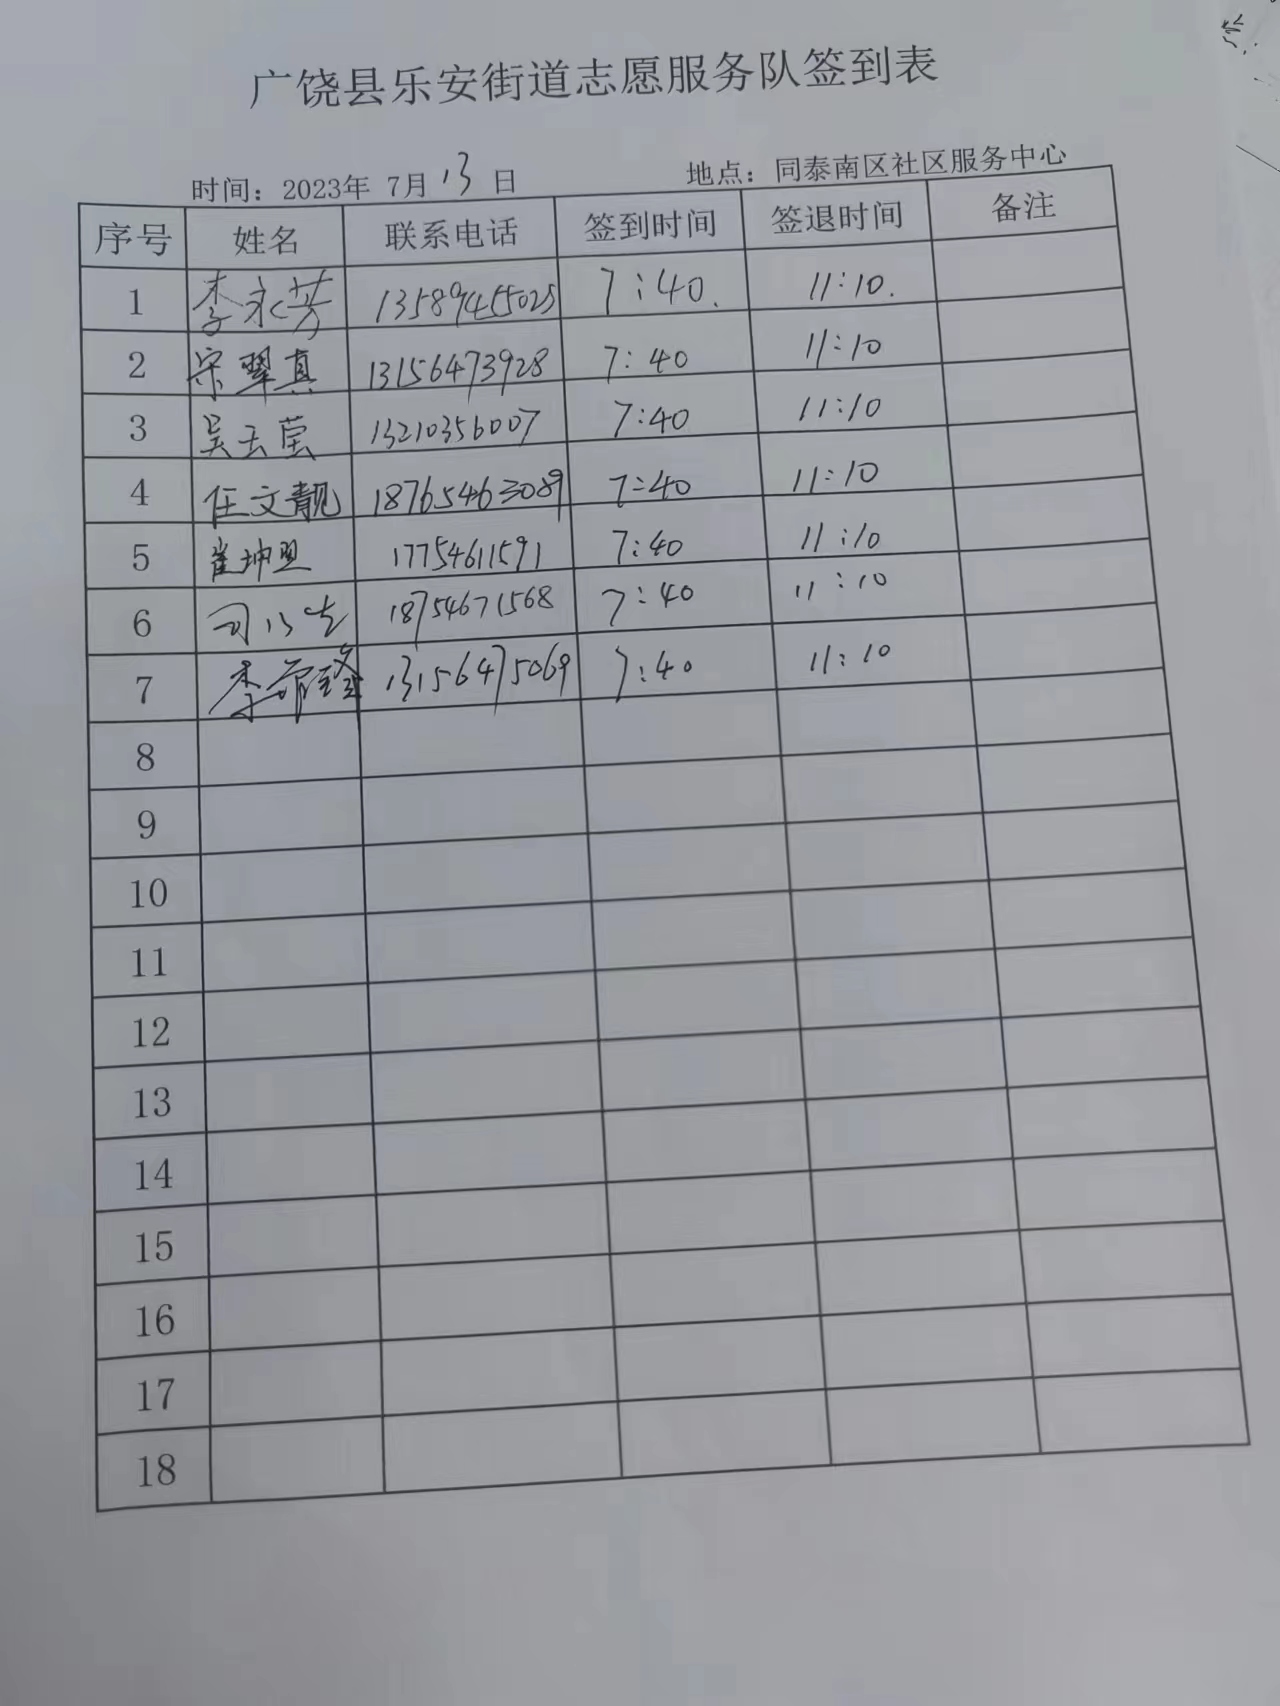 广饶县乐安街道志愿服务队签到表
时间：2023年 7月 13 日 地点：同泰南区社区服务中心
序号 姓名 联系电话 签到时间 签退时间 备注
1 李永芳 13589455025 7:40. 11:10.
2 宋翠真 13156473928 7:40 11:10
3 吴玉莹 13210356007 7:40 11:10
4 任文靓 18765463089 7:40 11:10
5 崔坤 17754611591 7:40 11:10
6 司 18754671568 7:40 11:10
7 李 13156475069 7:40 11:10
8
9
10
11
12
13
14
15
16
17
18